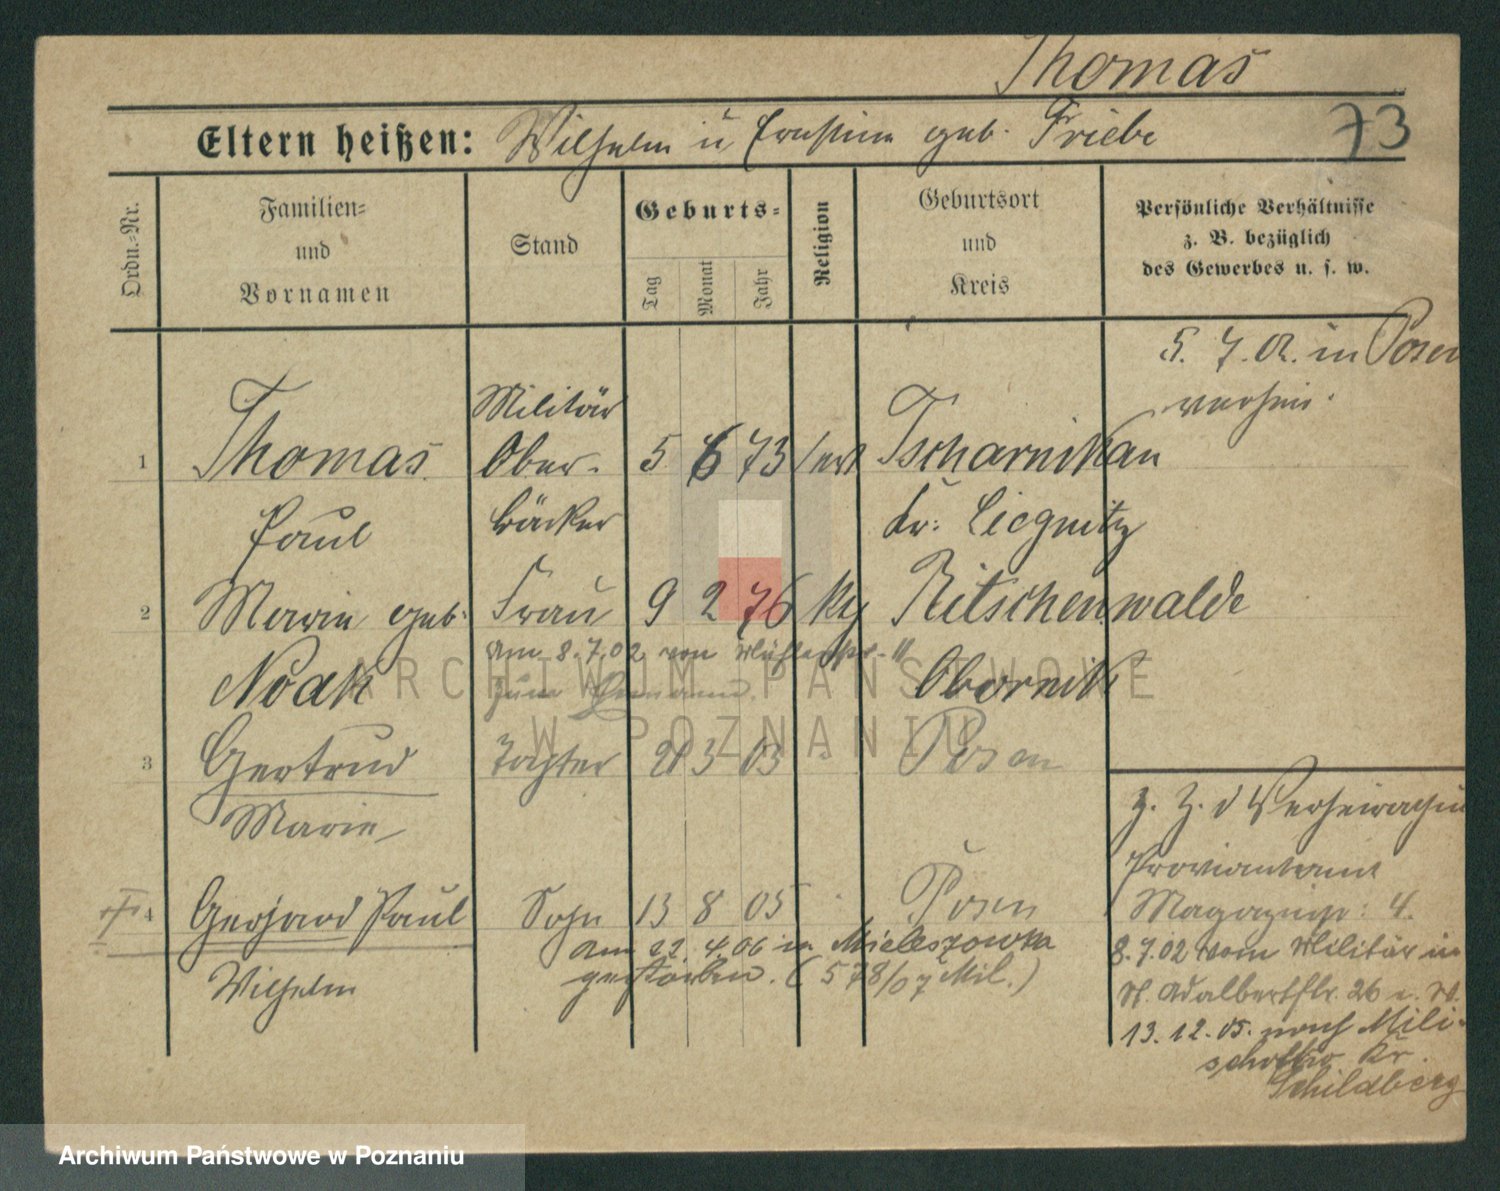 Thomas
73
Eltern heißen: Wilhelm u Ernestine geb. Friebe
Ordn.-Nr.
Familien-
und
Vornamen
Stand
Geburts-
Tag
Monat
Jahr
Religion
Geburtsort
und
Kreis
Persönliche Verhältnisse
z. B. bezüglich
des Gewerbes u. s. w.
5. 7. 02. in Posen
verheir.
1 Thomas Militär Ober- 5 6 73 Tscharnikau
Paul bäcker Kr: Liegnitz
2 Marie geb. Frau 9 2 76 Ritschenwalde
am 8.7.02 von
Noak zum Obornik
3 Gertrud Tochter 3 03 Posen
Marie
z. Z. d Verheirathung
Proviantamt
4 Gerhard Paul Sohn 13 8 05 Posen
Magazinstr: 4.
am 22. 4. 06 in
Wilhelm gestorben. (578/07 Mil.)
8.7.02 vom Militär in
St. Adalbertstr. 26 e. W.
13. 12. 05. nach Mili-
Kr.
Schildberg
ARCHIWUM PAŃSTWOWE
W POZNANIU
Archiwum Państwowe w Poznaniu